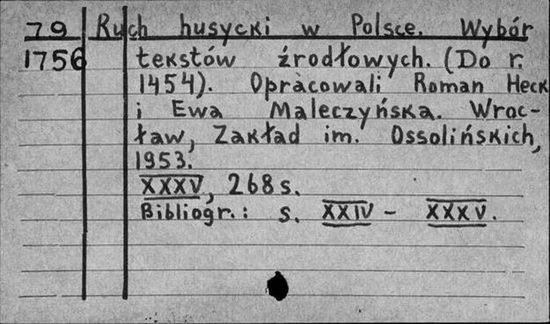 79 Ruch husycki w Polsce. Wybór
1756 tekstów źrodłowych. (Do r.
1454). Opracowali Roman Heck
i Ewa Maleczyńska. Wroc-
ław, Zakład im. Ossolińskich,
1953.
XXXV, 268 s.
Bibliogr.: s. XXIV - XXXV.